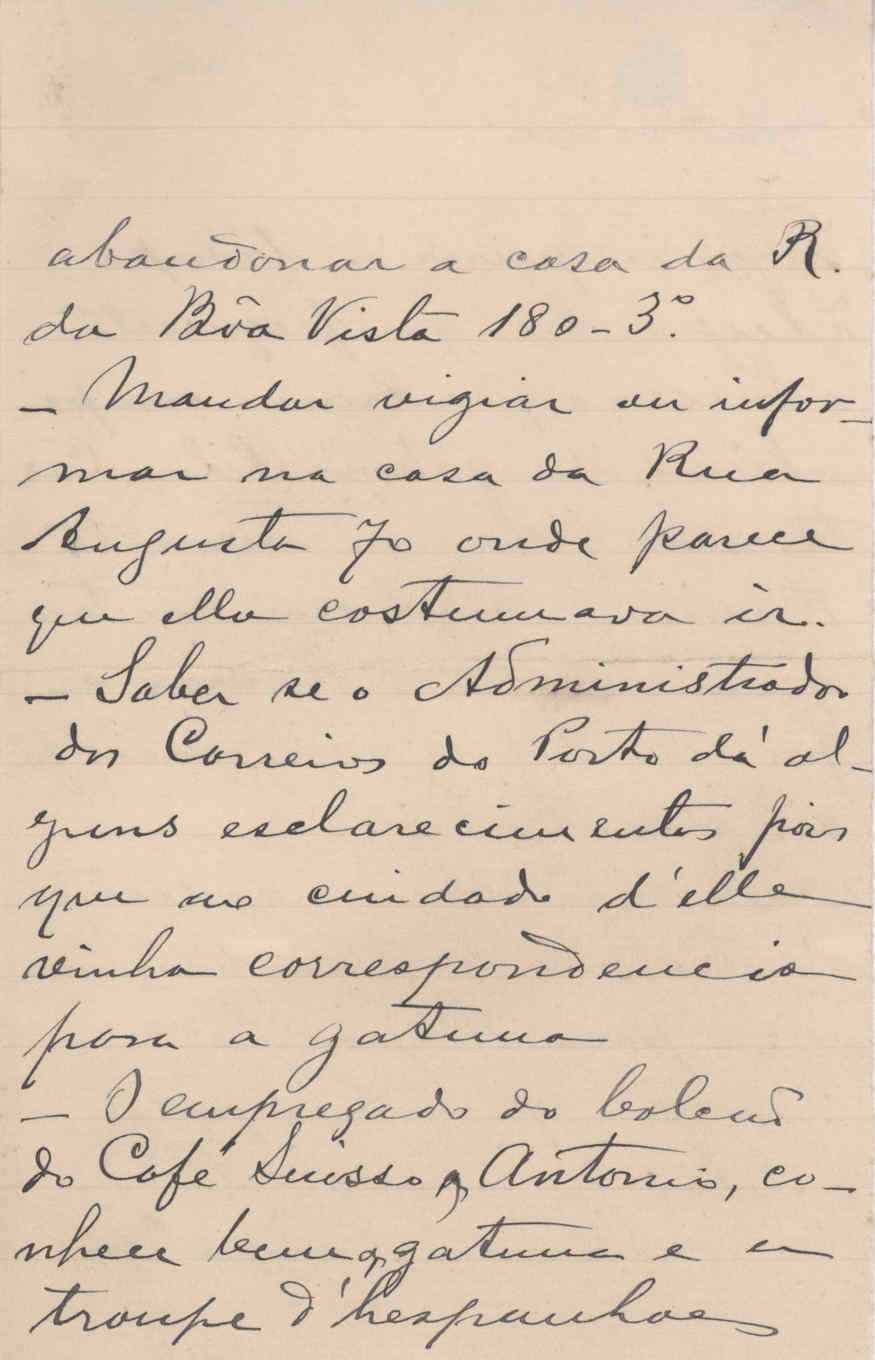 abandonar a casa da R.
da Bôa Vista 180-3º.
- Mandar vigiar ou infor-
mar na casa da Rua
Augusta 70 onde parece
que ella costumava ir.
- Saber se o Administrador
dos Correios do Porto dá al-
guns esclarecimentos pois
que ao cuidado d'elle
vinha correspondencia
para a gatuna
- O empregado do balcão
do Café Suisso, Antonio, co-
nhece bem a gatuna e a
troupe d'hespanhoes